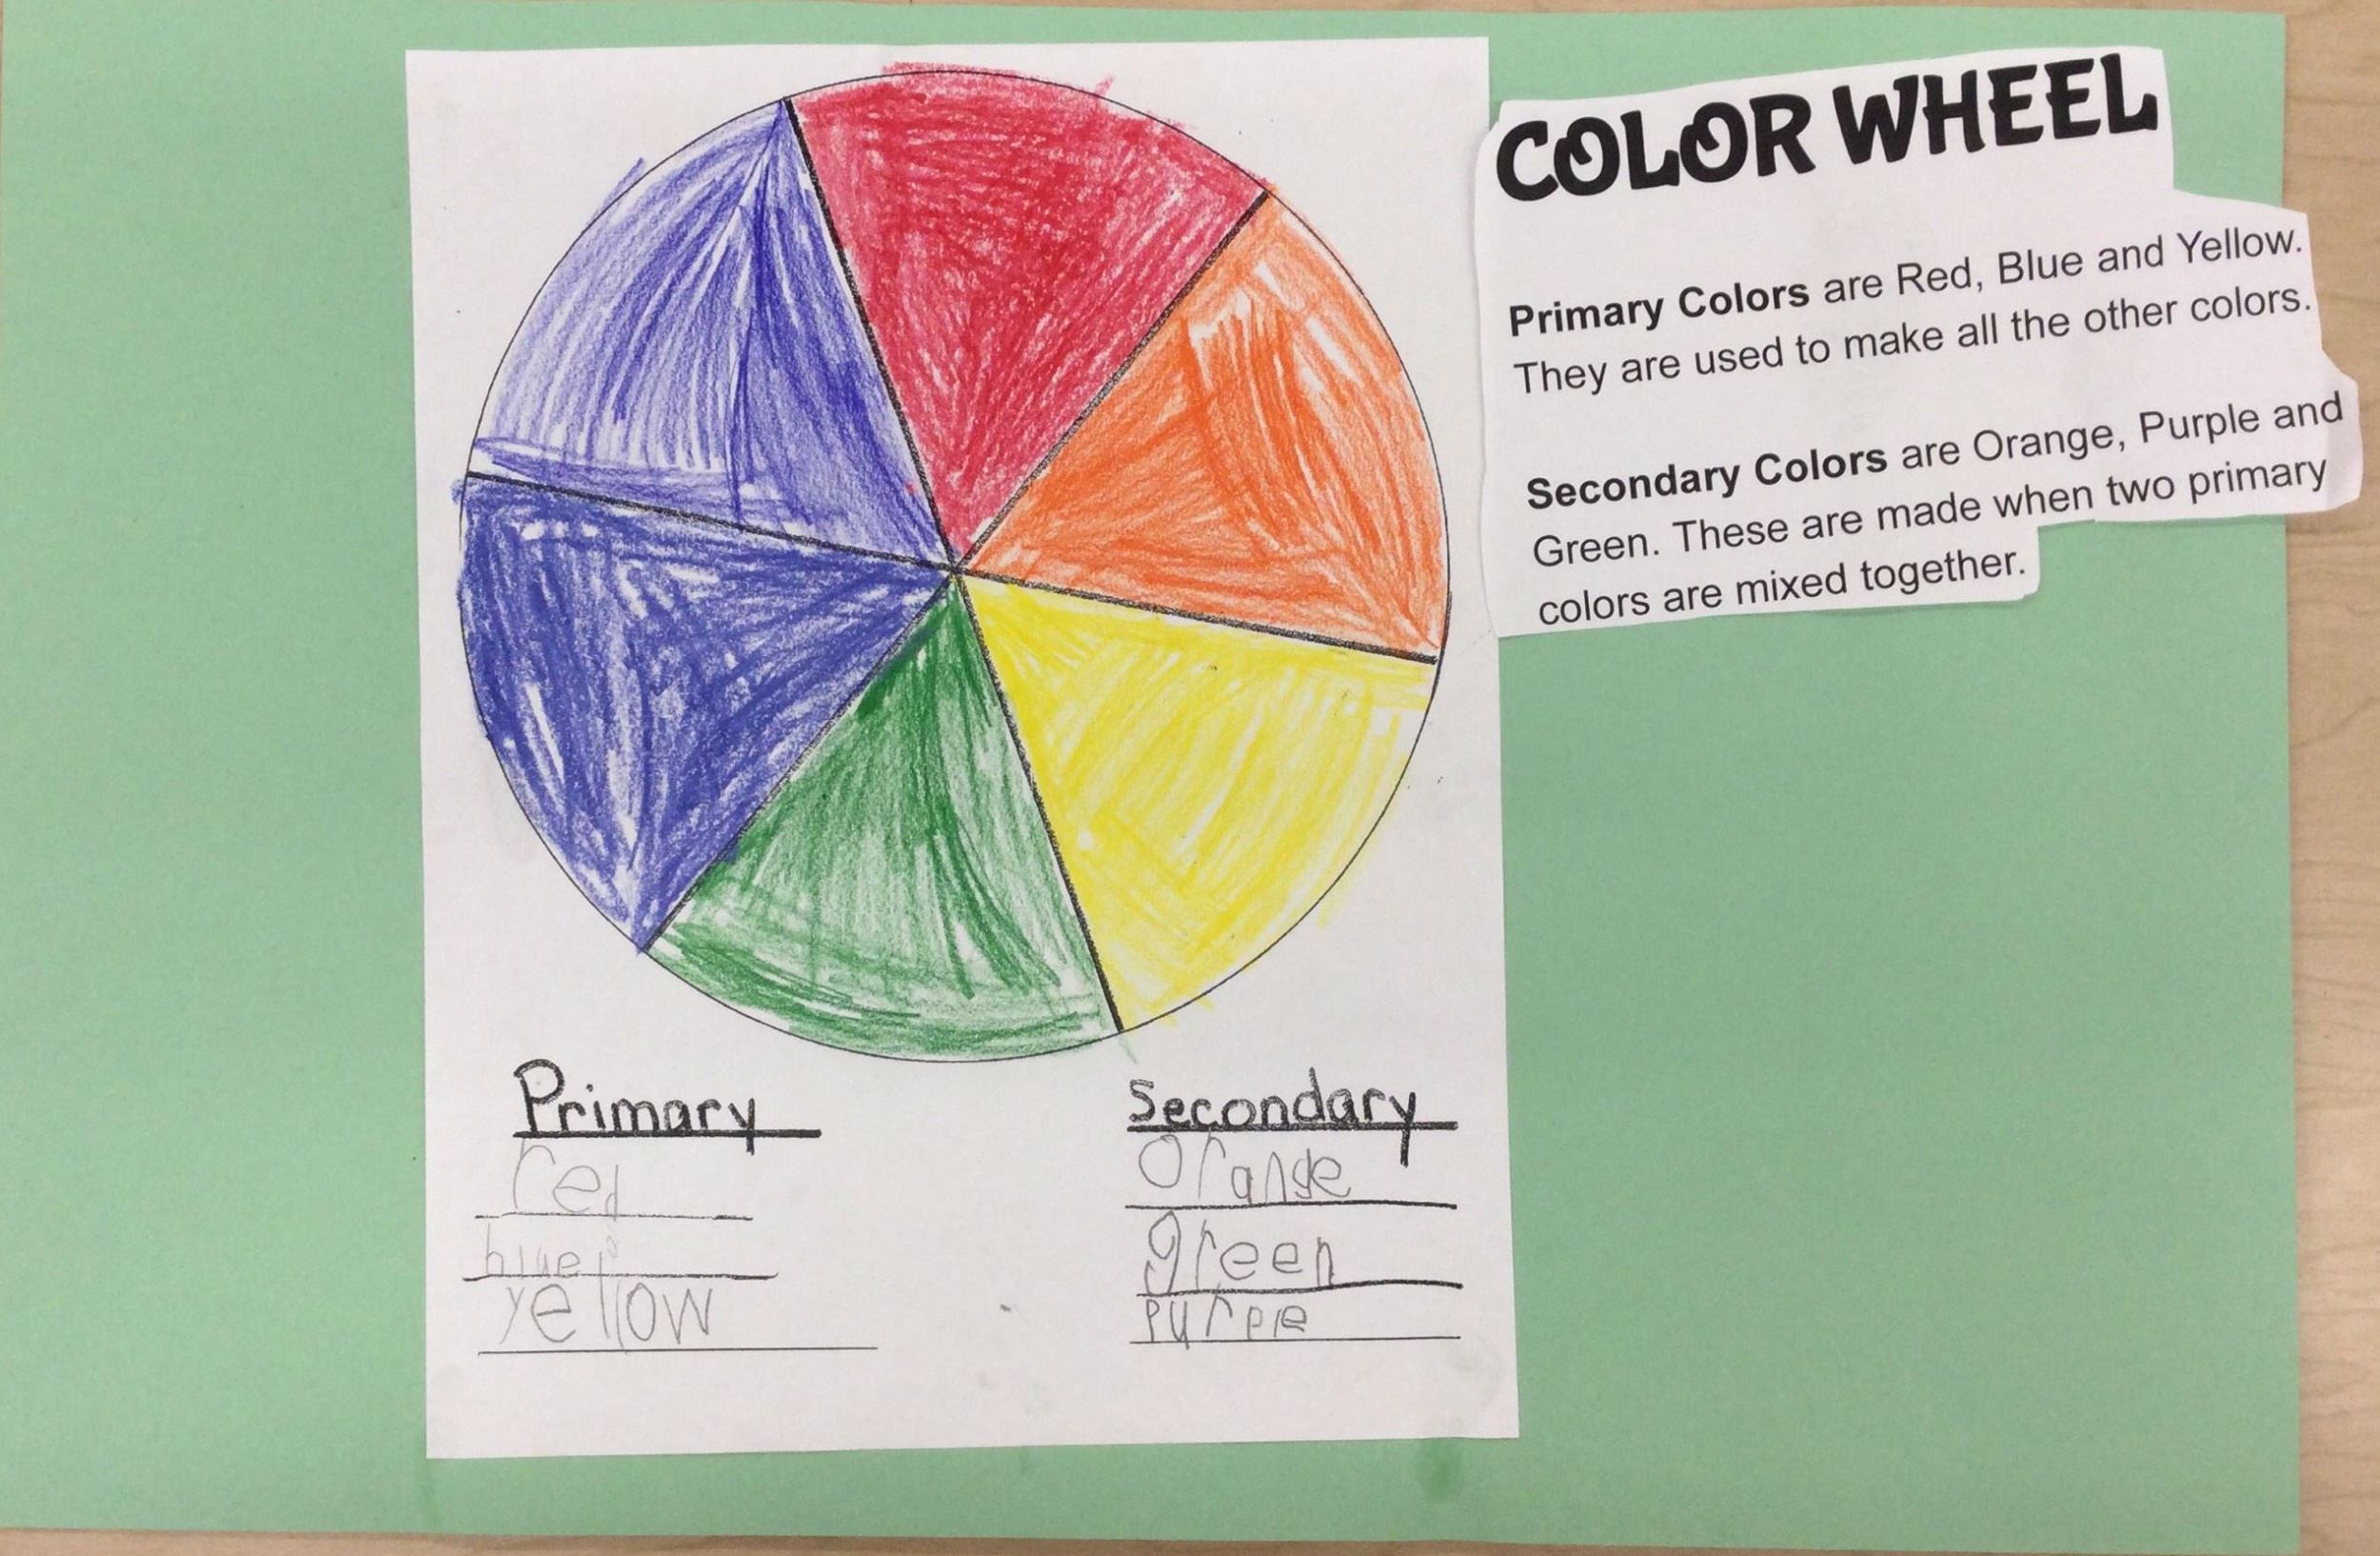 COLOR WHEEL
Primary Colors are Red, Blue and Yellow.
They are used to make all the other colors.
Secondary Colors are Orange, Purple and
Green. These are made when two primary
colors are mixed together.
Primary
red
blue
yellow
Secondary
Orange
green
purple